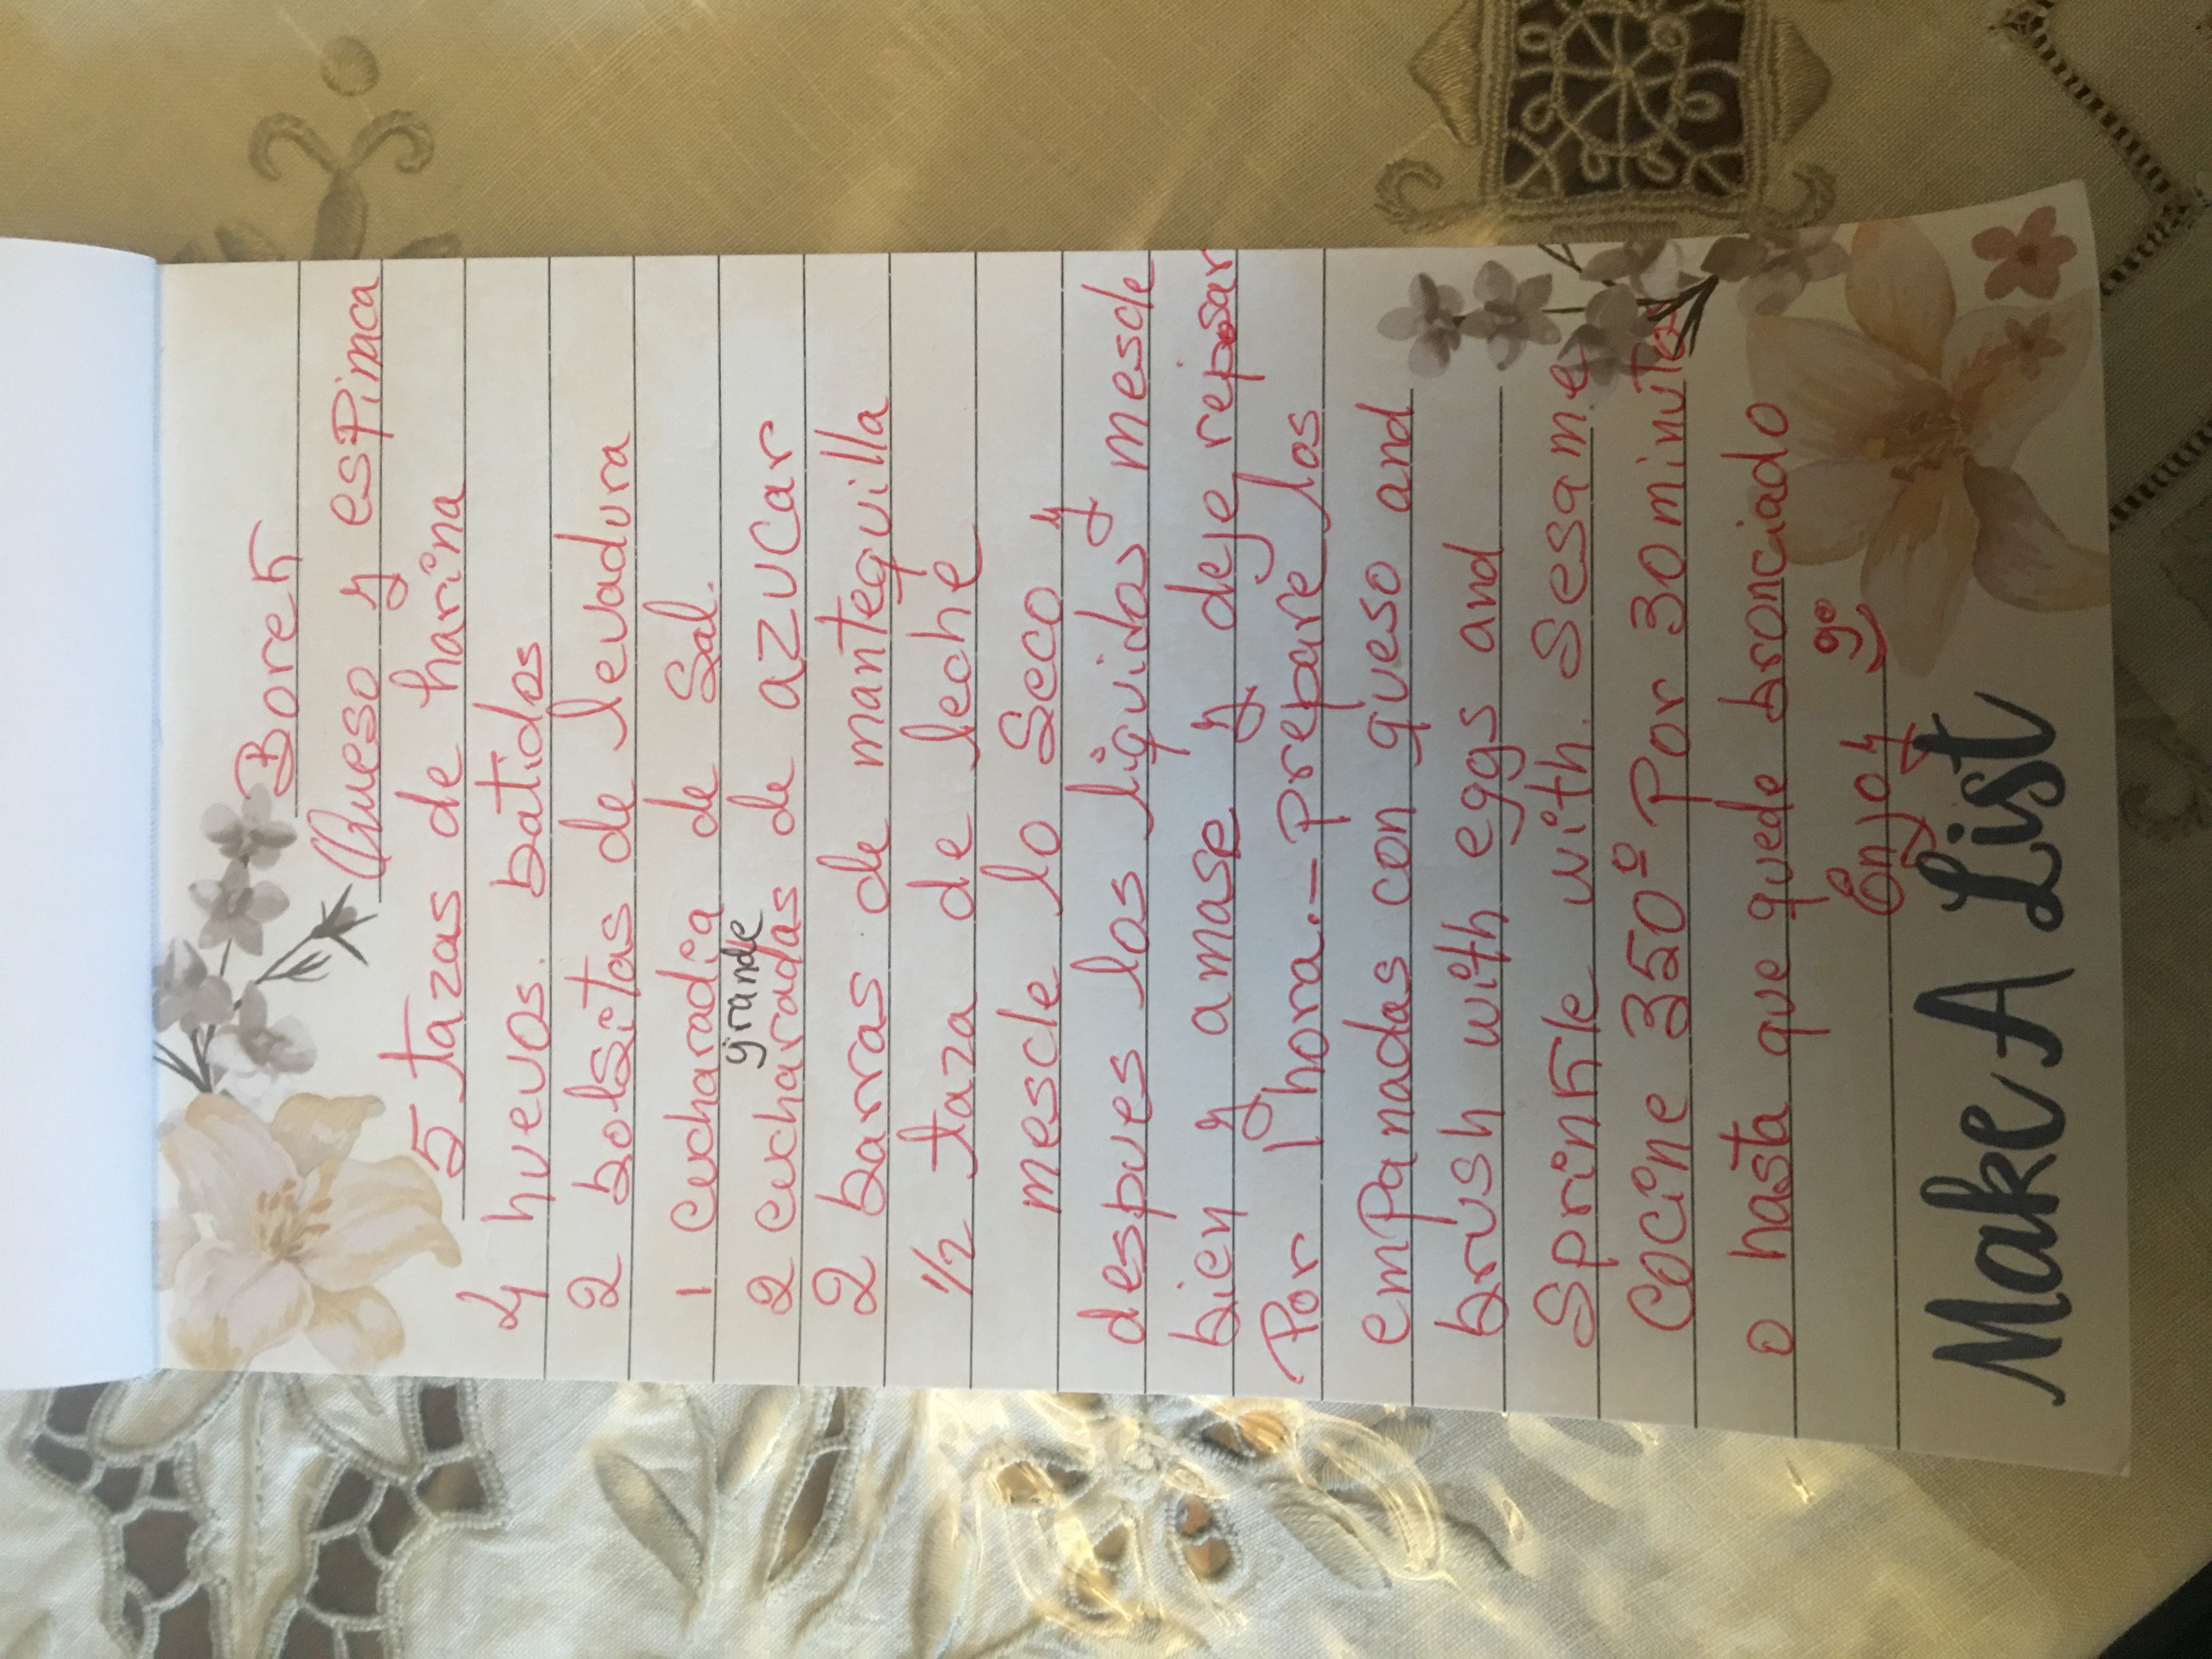 Borek
Queso y espinaca
5 tazas de harina
4 huevos. batidos
2 bolsitas de levadura
1 cucharadia de Sal.
grande
2 cucharadas de azucar
2 barras de mantequilla
1/2 taza de leche
mescle lo Seco y
despues los liquidos mescle
bien y amase y deje reposar
Por 1 hora.- prepare los
empanadas con queso and
brush with eggs and
Sprinkle with. Sesame
Cocine 350º Por 30 minutos
o hasta que quede bronciado
Enjoy
Make A List